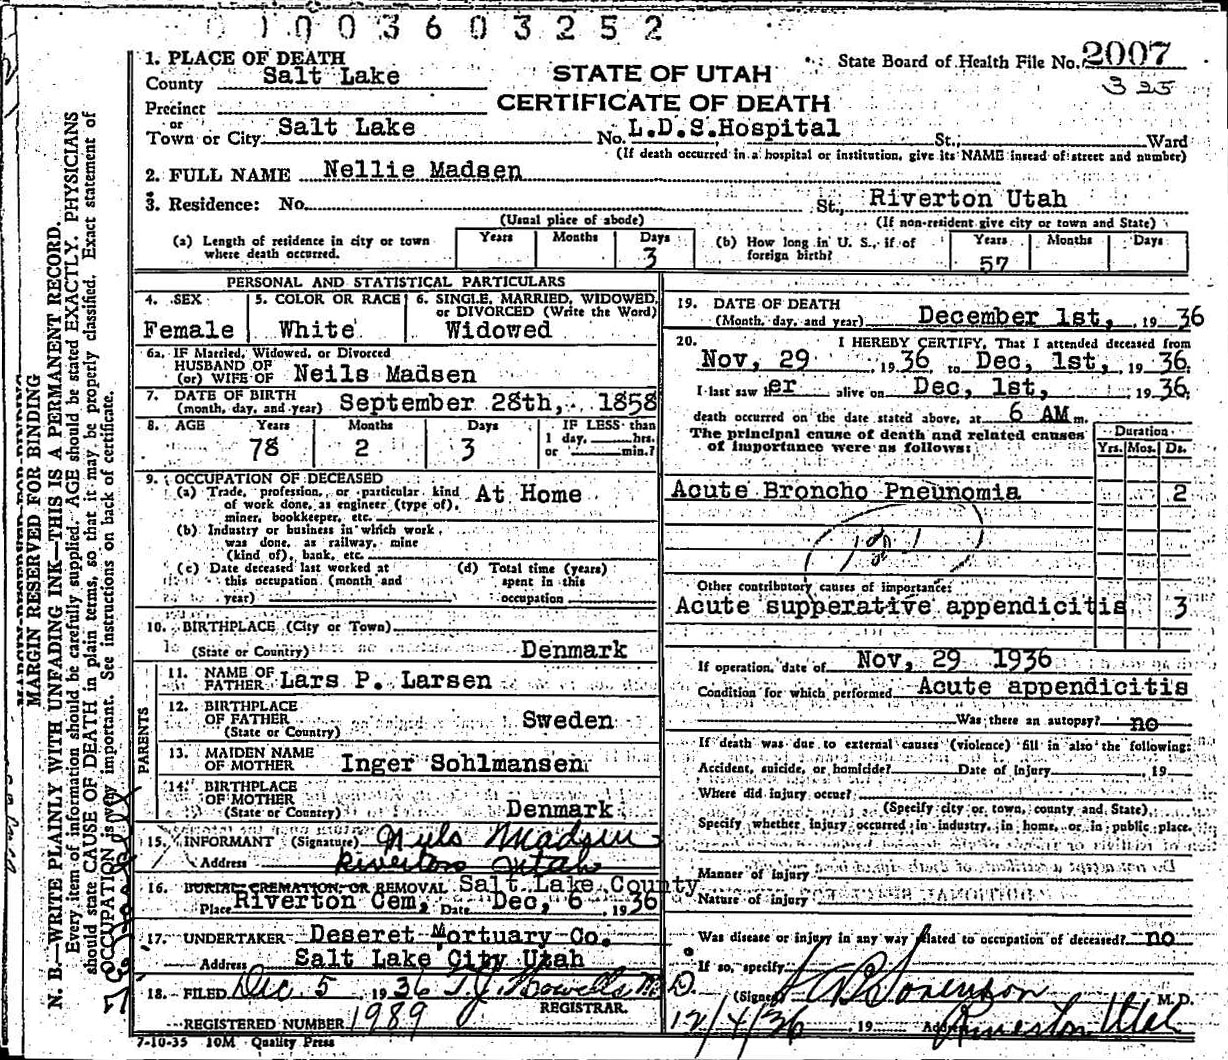 1003603252
1. PLACE OF DEATH
County Salt Lake
STATE OF UTAH
CERTIFICATE OF DEATH
State Board of Health File No. 2007
325
Precinct
or
Town or City Salt Lake No. L.D.S.Hospital St., Ward
(If death occurred in a hospital or institution, give its NAME instead of street and number)
2. FULL NAME Nellie Madsen
3. Residence: No. St., Riverton Utah
(Usual place of abode) (If non-resident give city or town and State)
(a) Length of residence in city or town where death occurred. Years Months Days 3
(b) How long in U. S., if of foreign birth? Years 57 Months Days
PERSONAL AND STATISTICAL PARTICULARS
4. SEX Female
5. COLOR OR RACE White
6. SINGLE, MARRIED, WIDOWED, or DIVORCED (Write the Word) Widowed
6a. IF Married, Widowed, or Divorced
HUSBAND OF
(or) WIFE OF Neils Madsen
7. DATE OF BIRTH
(month, day, and year) September 28th, 1858
8. AGE Years 78 Months 2 Days 3 IF LESS than 1 day, hrs. or min.?
9. OCCUPATION OF DECEASED
(a) Trade, profession, or particular kind At Home
of work done, as engineer (type of),
miner, bookkeeper, etc.
(b) Industry or business in which work
was done, as railway, mine
(kind of), bank, etc.
(c) Date deceased last worked at this occupation (month and year)
(d) Total time (years) spent in this occupation
10. BIRTHPLACE (City or Town)
(State or Country) Denmark
PARENTS
11. NAME OF FATHER Lars P. Larsen
12. BIRTHPLACE OF FATHER
(State or Country) Sweden
13. MAIDEN NAME OF MOTHER Inger Sohlmansen
14. BIRTHPLACE OF MOTHER
(State or Country) Denmark
15. INFORMANT (Signature) Niels Madsen
Address Riverton Utah
16. BURIAL, CREMATION, OR REMOVAL Salt Lake County
Place Riverton Cem, Date Dec, 6 1936
17. UNDERTAKER Deseret Mortuary Co.
Address Salt Lake City Utah
18. FILED Dec. 5 1936 T.J. Howells M.D.
REGISTRAR.
REGISTERED NUMBER 1989
7-10-35 10M Quality Press
19. DATE OF DEATH
(Month, day, and year) December 1st, 1936
20. I HEREBY CERTIFY, That I attended deceased from
Nov, 29 1936 to Dec, 1st, 1936.
I last saw her alive on Dec, 1st, 1936.
death occurred on the date stated above, at 6 AM m.
The principal cause of death and related causes
of importance were as follows:
Duration
Yrs. Mos. Ds.
Acute Broncho Pneunomia 2
Other contributory causes of importance:
Acute supperative appendicitis 3
If operation, date of Nov, 29 1936
Condition for which performed Acute appendicitis
Was there an autopsy? no
If death was due to external causes (violence) fill in also the following:
Accident, suicide, or homicide? Date of Injury , 19
Where did injury occur?
(Specify city or town, county and State)
Specify whether injury occurred in industry, in home, or in public place.
Manner of injury
Nature of injury
Was disease or injury in any way related to occupation of deceased? no
If so, specify
(Signed) Sorenson M. D.
12/4/36 , 19 Address Riverton Utah
MARGIN RESERVED FOR BINDING
N. B.—WRITE PLAINLY WITH UNFADING INK—THIS IS A PERMANENT RECORD.
Every item of information should be carefully supplied. AGE should be stated EXACTLY. PHYSICIANS
should state CAUSE OF DEATH in plain terms, so that it may be properly classified. Exact statement of
OCCUPATION is very important. See instructions on back of certificate.